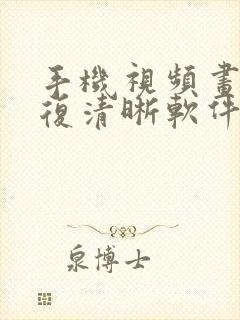 手機視頻畫
復清晰軟件
泉博士